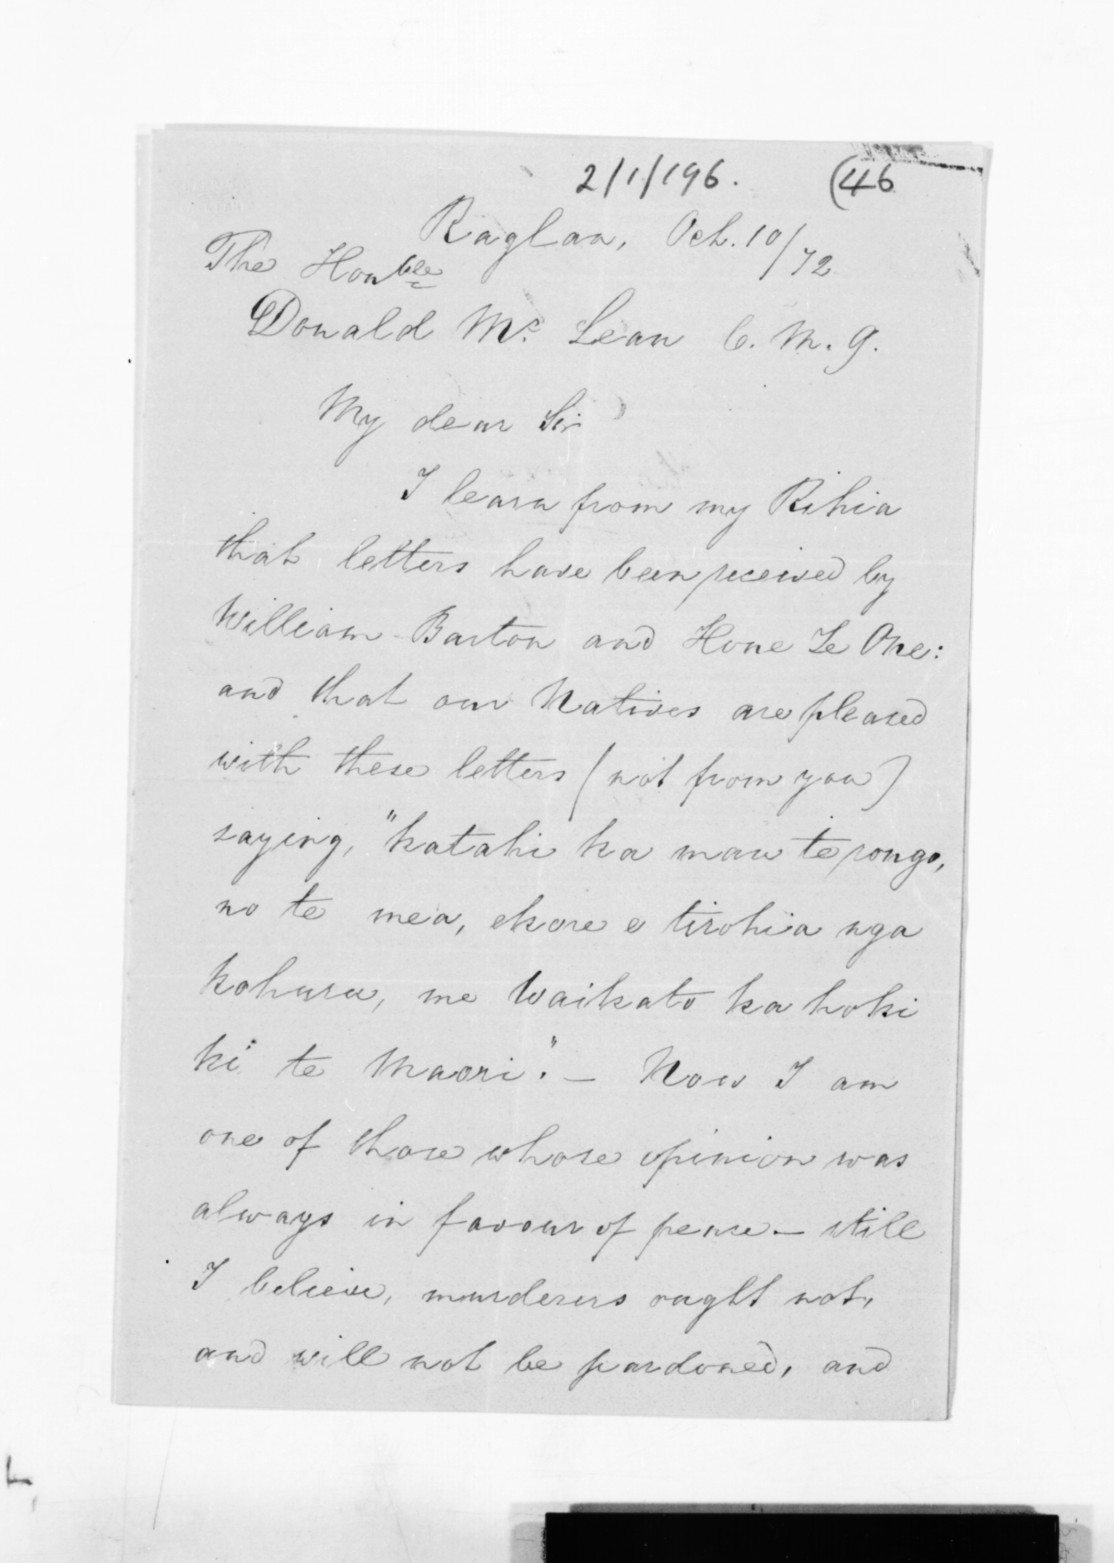 2/1/196. (46
Raglan, Oct. 10/72
The Honble
Donald Mc. Lean C. M. G.
My dear Sir
I learn from my Rihia
that letters have been received by
William Barton and Hone Te One:
and that our Natives are pleased
with these letters (not from you)
saying, "katahi ka mau te rongo,
no te mea, ekore e tirohia nga
kohuru, me Waikato ka hoki
ki te Maori". — Now I am
one of those whose opinion was
always in favour of peace — still
I believe, murderers ought not,
and will not be pardoned, and